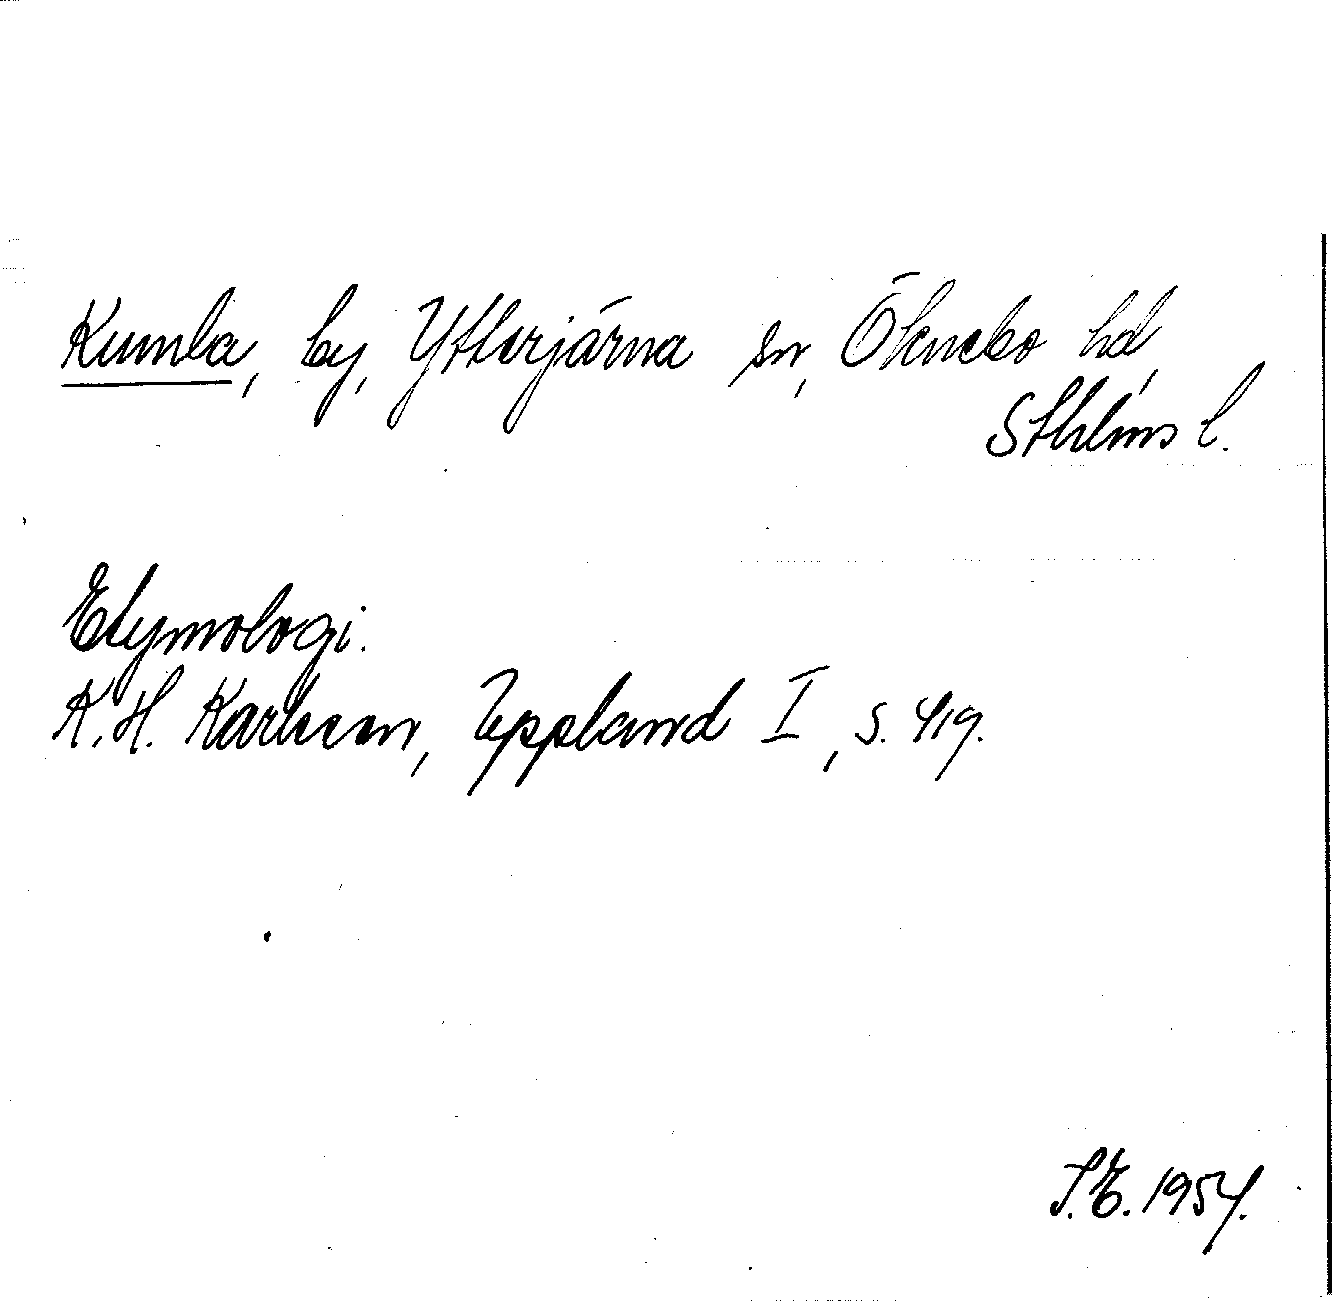 Kumla, by, Ytterjärna sn, Öknebo hd,
Sthlms l.
Etymologi.
K. H. Karlsson, Uppland I, s. 419.
S. E. 1954.